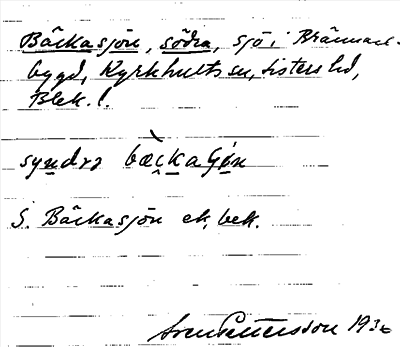 Bäckasjön, södra, sjö i Brännare-
bygd, Kyrkhults sn, Listers hd,
Blek. l.
syndrə
S. Bäckasjön ek. bek.
Sven Pettersson 1936